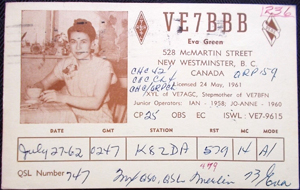 1336
VE7BBB
Eva Green
528 McMARTIN STREET
NEW WESTMINSTER, B. C.
CANADA
QRP 59
CHC 421
Licensed 24 May, 1961
XYL of VE7AGC, Stepmother of VE7BFN
Junior Operators: IAN - 1958; JO-ANNE - 1960
CP 25 OBS EC ISWL: VE7-9615
DATE GMT STATION RST MC
July 27-62 0247 K8ZDA 579 14 A1
479
QSL Number 747
Tnx QSO, QSL Merlin 73 Eva